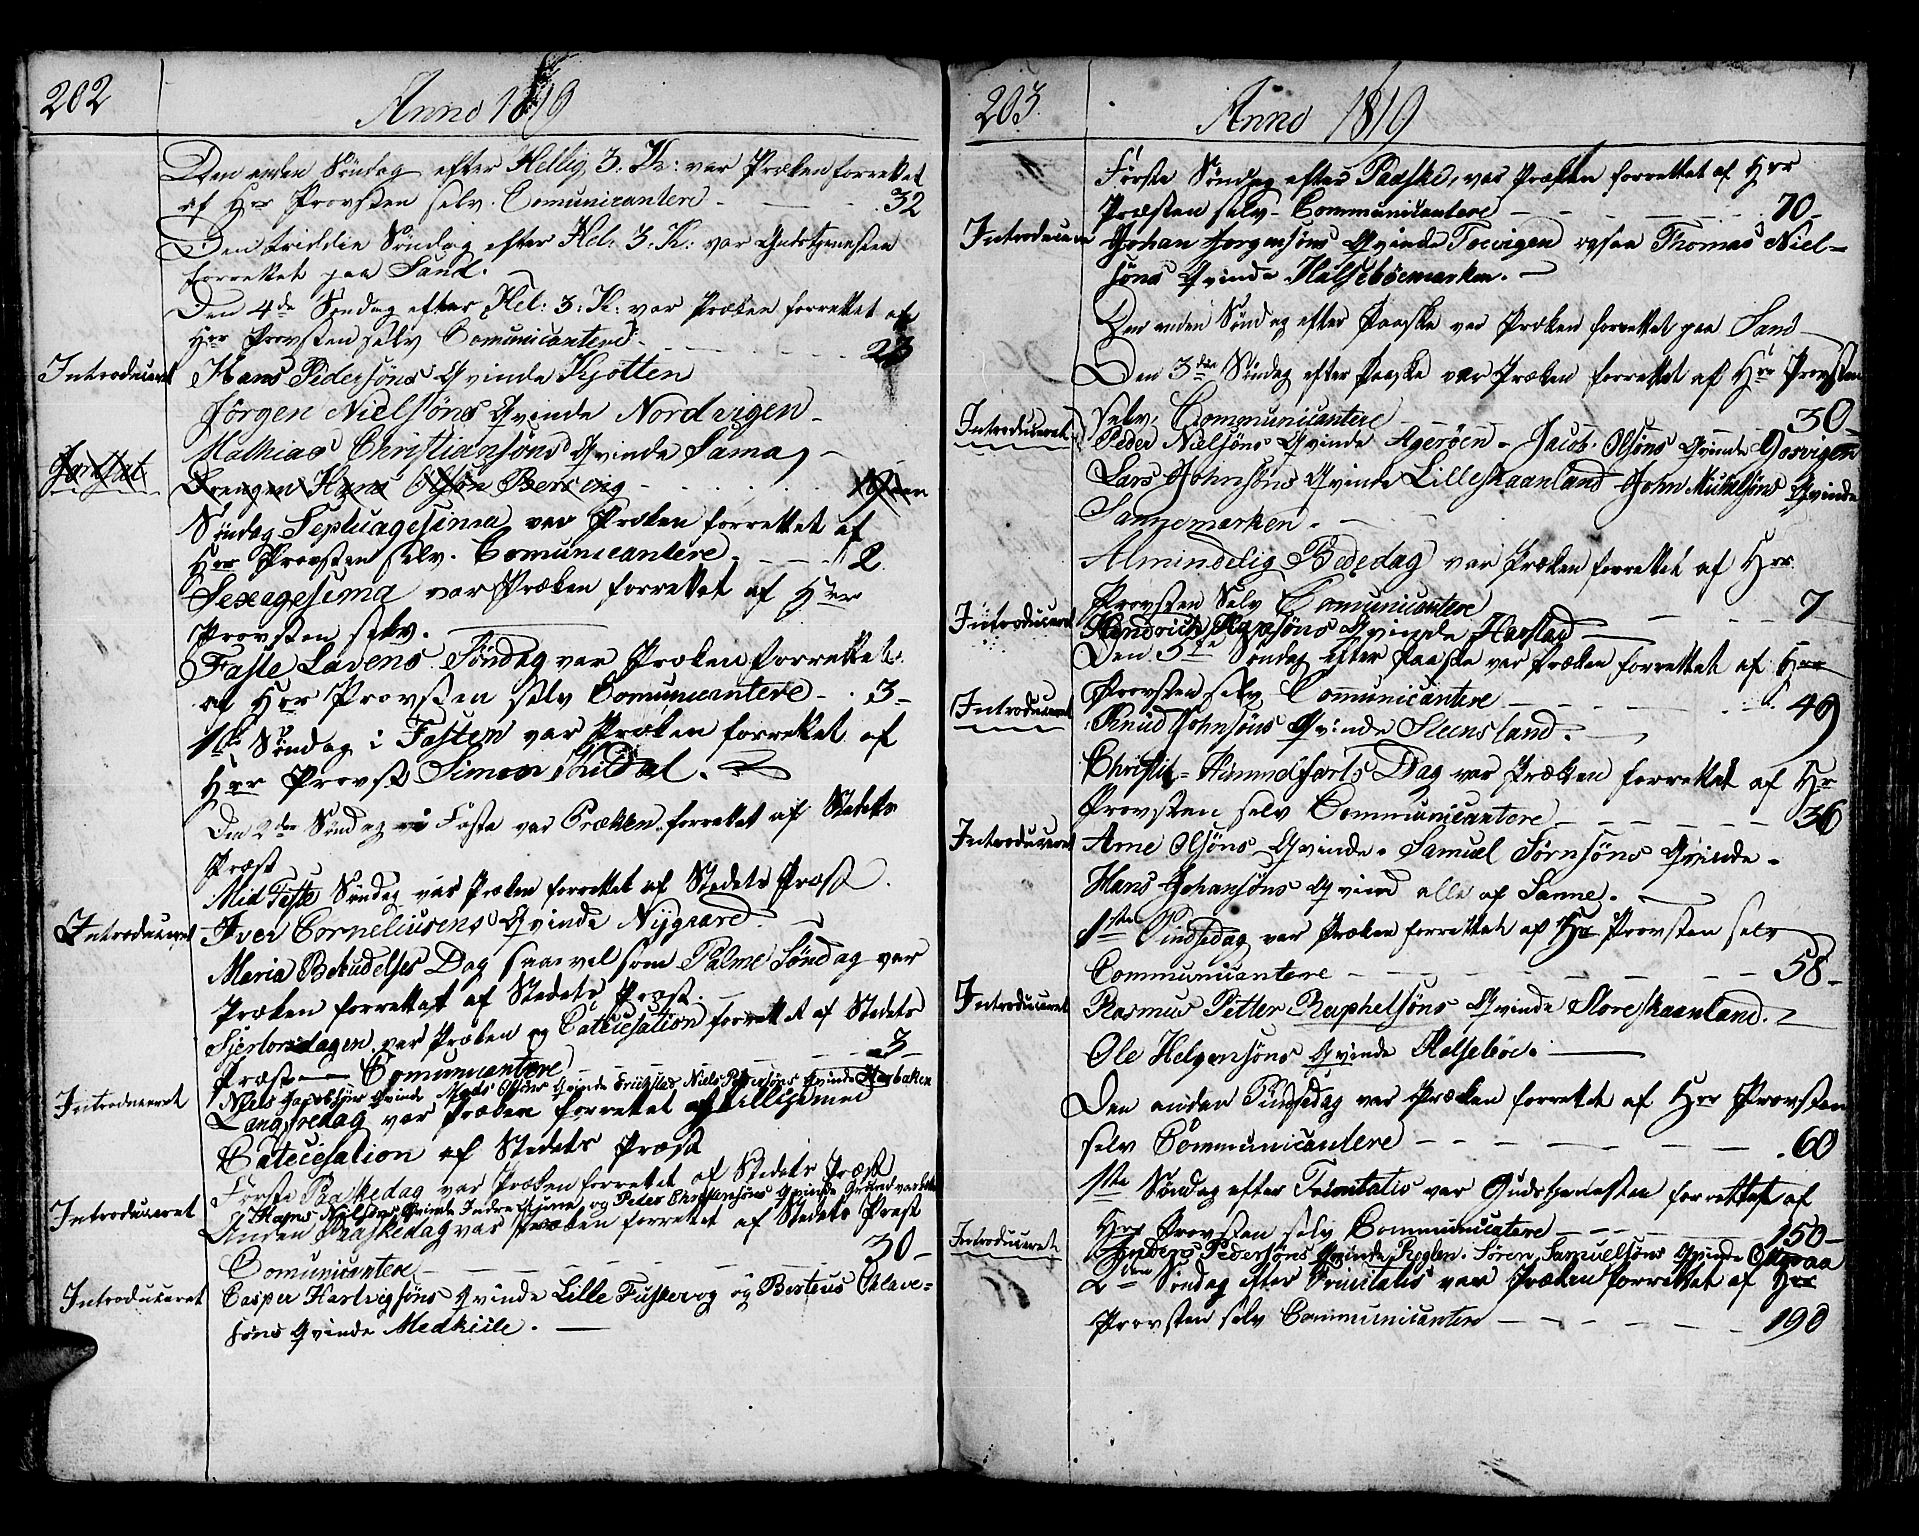 202
Anno 1819
Den anden Søndag efter Hellig 3. K: var Præken forrettet
af Hrr Provsten selv. Comunicantere - 32
Den triddie Søndag efter Hel: 3. K: var Gudstjenesten
forrettet paa Sand.
Den 4de Søndag efter Hel: 3: K: var Præken forrettet af
Hrr Provsten selv Comunicantere - 23
Introduceret Hans Pedersöns Qvinde Kjötten
Jörgen Nielsöns Qvinde Nordvigen -
Mathias Christiansöns Qvinde Sama, -
Drengen Hans Olsön Berseng
Søndag Septuagesima var Præken forrettet af
Hrr Provsten selv. Comunicantere. - - 2
Sexagesima var Præken forrettet af Hrr
Provsten selv.
Faste Lavens Søndag var Præken forrettet
af Hrr Provsten selv Comunicantere - . 3 -
1ste Søndag i Fasten var Præken forrettet af
Hrr Provst Simon Kildal.
Den 2den Søndag i Faste var Præken forrettet af Stedets
Præst
Mid Faste Søndag var Præken forrettet af Stedets Præst.
Introduceret Iver Corneliusens Qvinde Nygaard.
Maria Bebudelses Dag saavel som Palme Søndag var
Præken forrettet af Stedets Præst. -
Sjertorsdagen var Præken og Catecisation forrettet af Stedets
Præst - Comunicantere - 3 -
Introduceret Niels Jacobsöns Qvinde Mads Olsöns Qvinde Niels Pedersöns Qvinde Haybaken
Langfredag var Præken forrettet af tilligemed
Catecisation af Stedets Præst
Förste Paaskedag var Præken forrettet af Stedets Præst
Introduceret Hans Nielsöns Qvinde Indrestjerne og Peter Christensöns Qvinde
Anden Paaskedag var Præken forrettet af Stedets Præst
Comunicantere - 30 -
Introduceret Casper Hartvigsöns Qvinde Lille Fuskevog og Berteus Olave-
söns Qvinde Medkiile. -
203
Anno 1819
Förste Søndag efter Paaske, var Præken forrettet af Hrr
Præsten selv - Communicantere - 70 -
Introduceret Johan Jorgensöns Qvinde Toevigen ogsaa Thomas Niel-
söns Qvinde Halseböemarken. -
Den anden Sündag efter Paaske var Præken forrettet paa Sand
Den 3die Søndag efter Paaske var Præken forrettet af Hrr Provsten
selv, Communicantere 30 -
Introduceret Peder Nielsöns Qvinde Ageröen - Jacob Olsöns Qvinde Gosvigen
Lars Johnsöns Qvinde Lilleskaanland John Mickelsöns Qvinde
Sannemarken. -
Almindelig Bededag var Præken forrettet af Hrr
Provsten Selv Comunicantere - 7
Introduceret Hendrich Hansöns Qvinde Havstad -
Den 5te Søndag efter Paaske var Præken forrettet af Hrr
Provsten selv Comunicantere - 49
Introduceret Knud Johnsöns Qvinde Steensland.
Christi-Himmelfarts Dag var Præken forrettet af Hr
Provsten selv Communicantere - 36
Introduceret Arne Olsöns Qvinde - Samuel Törnsöns Qvinde -
Hans Johansöns Qvind alle af Sanne. -
1ste Pindsedag var Præken forrettet af Hr Provsten selv
Communicantere - 58 -
Introduceret Rasmus Petter Raphelsöns Qvinde Storeskaanland.
Ole Helgensöns Qvinde Halseböe. -
Den anden Pindsedag var Præken forrettet af Hrr Provsten
selv Communicantere - .60
1ste Søndag efter Trinitatis var Gudstjenesten forrettet af
Hrr Provsten selv Communicatere - 150 -
Introduceret Anders Pedersöns Qvinde Reglen. Sören Samuelsöns Qvinde Otteraa
2den Søndag efter Trinitatis var Præken forrettet af Hrr
Provsten selv Communicantere - 190